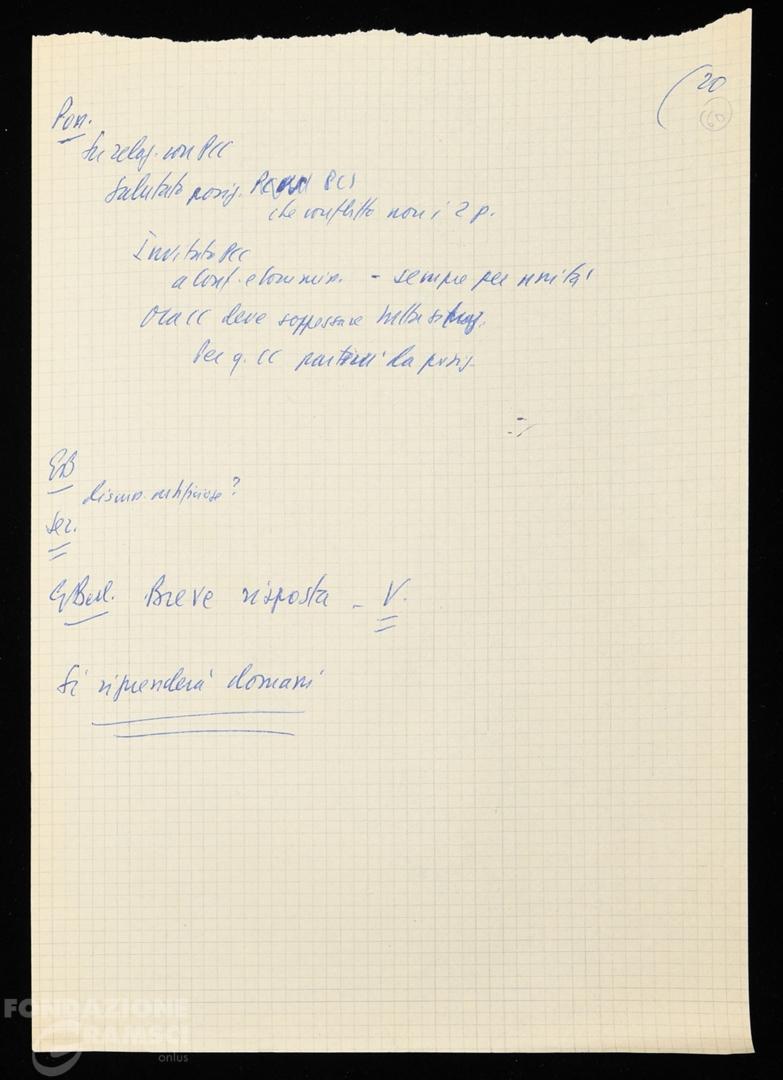 (20
60
Pon.
Su relaz. con PCC
Salutato posiz. PCI
che conflitto non i 2 p.
Invitato PCC
a Conf. e comun. - sempre per unità
Ora CC deve soppesare
Per q. CC da posiz.
EB
discuss.
ser.
GBerl. Breve risposta - V.
Si riprenderà domani
FONDAZIONE
GRAMSCI
onlus